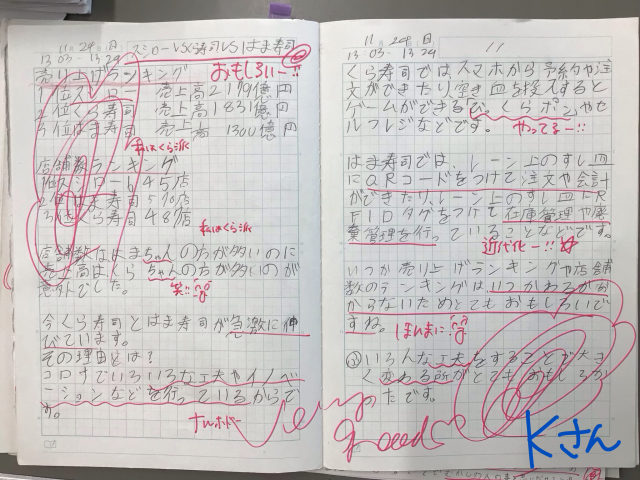 11/24(日)
13:03-13:24
スシローVSくら寿司VSはま寿司
売り上げランキング
おもしろいー!!
1位スシロー 売上高2199億円
2位くら寿司 売上高1831億円
3位はま寿司 売上高1300億円
私はくら派
店舗数ランキング
1位スシロー 645店
2位はま寿司 510店
3位くら寿司 48店
私はくら派
店舗数ははまちゃんの方が多いのに
売上高はくらちゃんの方が多いのが
意外でした。
笑!!
今くら寿司とはま寿司が急激に伸
びています。
その理由とは?
コロナでいろいろな工夫やイノベ
ーションなどを行っているからで
す。
ナルホドー
11/24(日)
13:03-13:24
くら寿司では、スマホから予約や注
文ができたり、空き皿を投入すると
ゲームができるびっくらポンやセ
ルフレジなどです。
やってるー!!
はま寿司では、レーン上のすし皿
にQRコードをつけて注文や会計
ができたり、レーン上のすし皿にR
FIDタグをつけて在庫管理や廃
棄管理を行っていることなどです。
近代化ー!!
いつか売り上げランキングや店舗
数のランキングはいつかわるかが
からないためとてもおもしろいで
すね。
ほんまに
いろんな工夫をすることが大き
く変わる所がとてもおもしろか
ったです。
Very good
Kさん